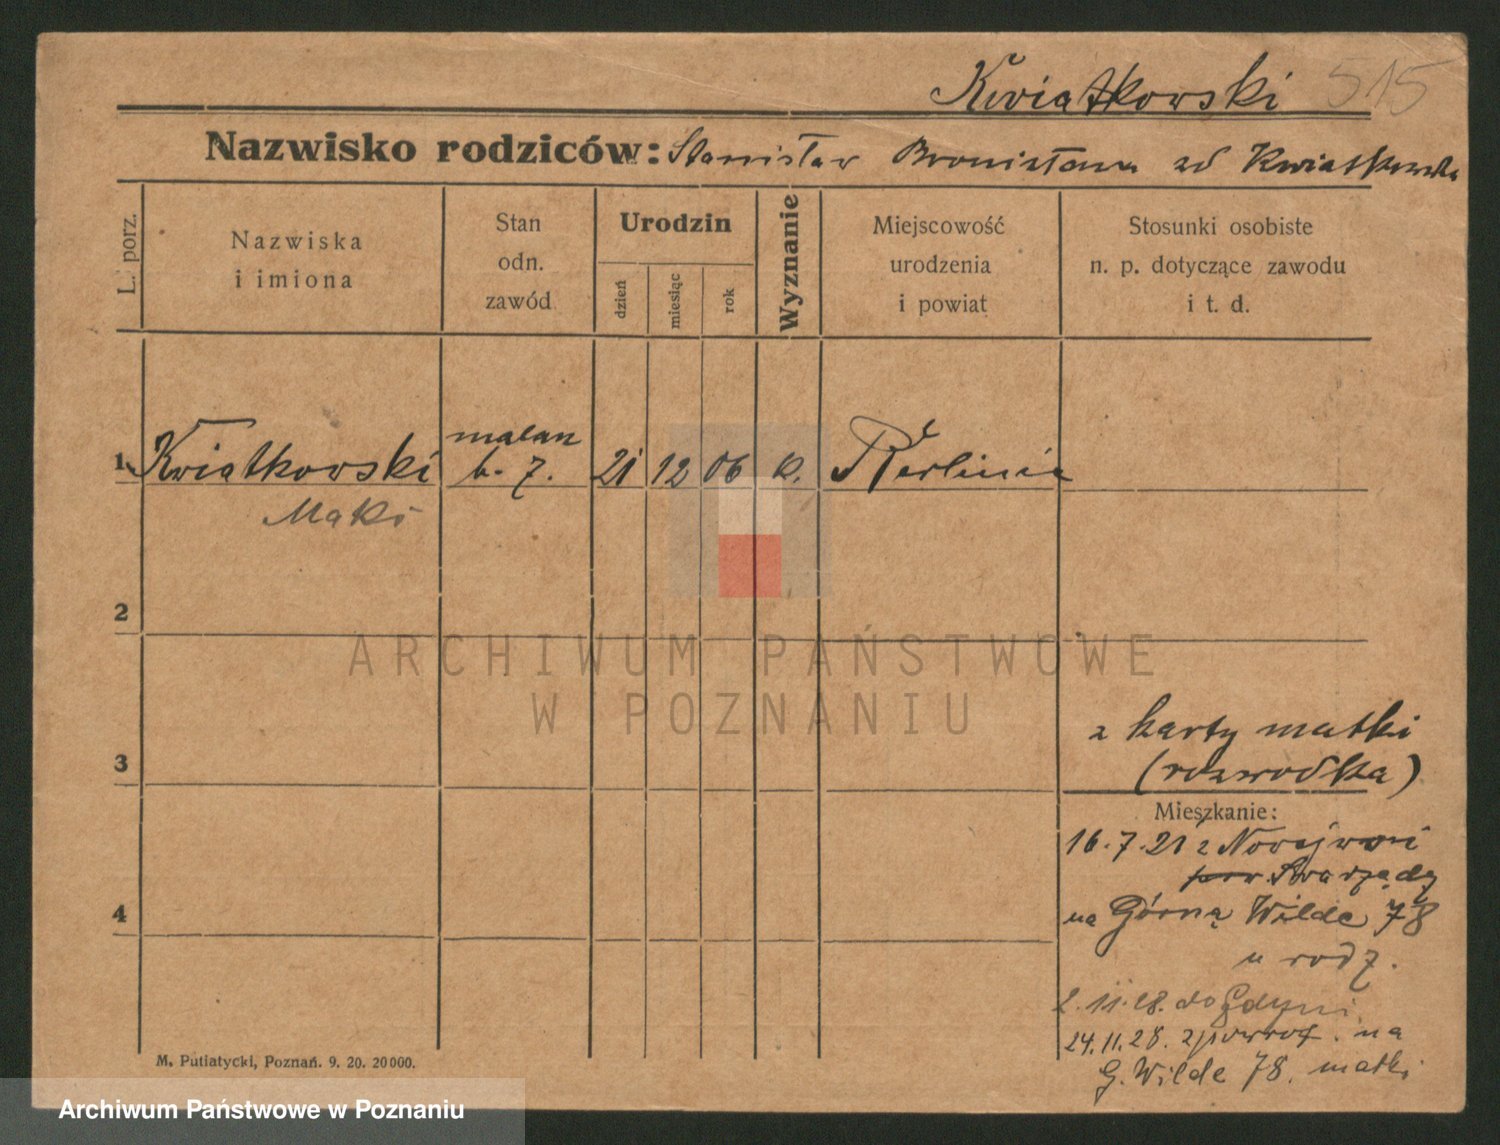 Kwiatkowski 515
Nazwisko rodziców: Stanisław Bronisława zd Kwiatkowska
L. porz.
Nazwiska
i imiona
Stan
odn.
zawód
Urodzin
dzień
miesiąc
rok
Wyznanie
Miejscowość
urodzenia
i powiat
Stosunki osobiste
n. p. dotyczące zawodu
i t. d.
malarz
1 Kwiatkowski b. z. 21 12 06 k. Berlinie
2
3
4
z karty matki
(rozwodka)
Mieszkanie:
16.7.21 z
pow.
na Górną Wilde 78
u rodz.
2.11.28. do Gdyni
24.11.28. z powrot. na
G. Wilde 78. matki
M. Putiatycki, Poznań. 9. 20. 20000.
ARCHIWUM PAŃSTWOWE
W POZNANIU
Archiwum Państwowe w Poznaniu